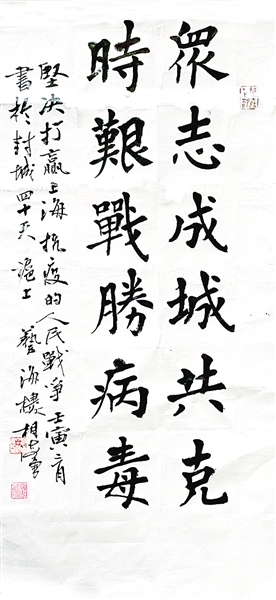 眾志成城共克
時艱戰勝病毒
堅决打赢上海抗疫的人民戰争壬寅三月
書於封城四十天滬上藝海樓